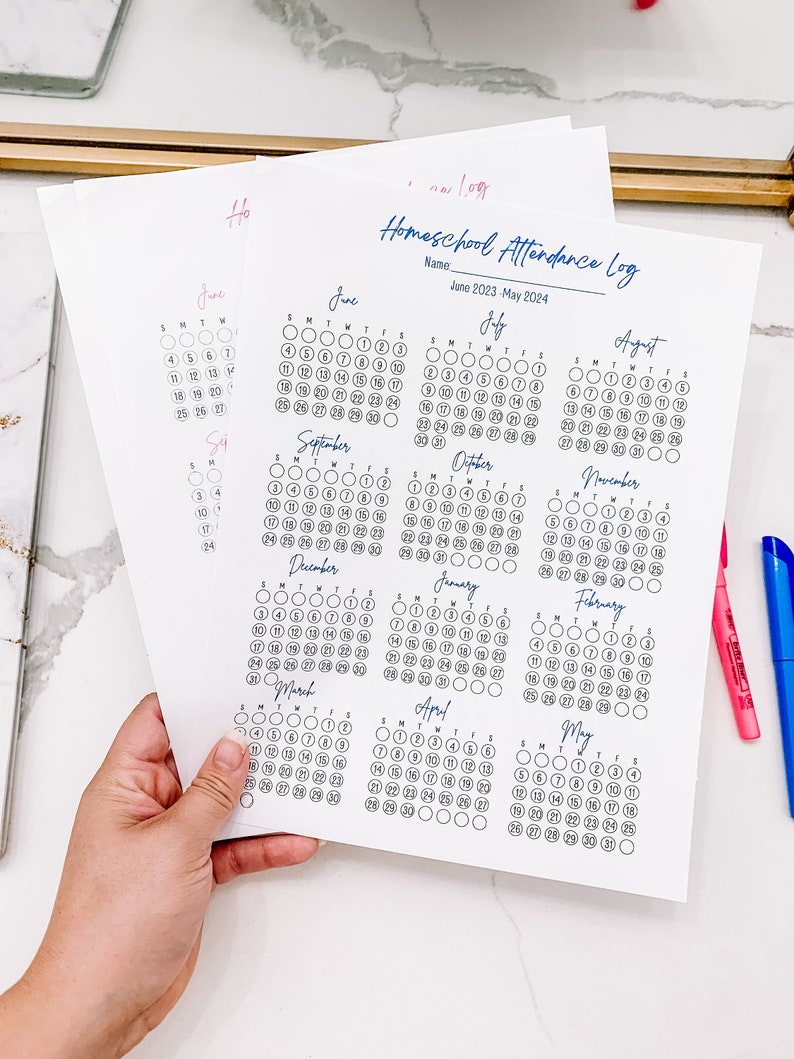 Homeschool Attendance Log
Name:
June 2023 -May 2024
June
S M T W T F S
1 2 3
4 5 6 7 8 9 10
11 12 13 14 15 16 17
18 19 20 21 22 23 24
25 26 27 28 29 30
July
S M T W T F S
1
2 3 4 5 6 7 8
9 10 11 12 13 14 15
16 17 18 19 20 21 22
23 24 25 26 27 28 29
30 31
August
S M T W T F S
1 2 3 4 5
6 7 8 9 10 11 12
13 14 15 16 17 18 19
20 21 22 23 24 25 26
27 28 29 30 31
September
S M T W T F S
1 2
3 4 5 6 7 8 9
10 11 12 13 14 15 16
17 18 19 20 21 22 23
24 25 26 27 28 29 30
October
S M T W T F S
1 2 3 4 5 6 7
8 9 10 11 12 13 14
15 16 17 18 19 20 21
22 23 24 25 26 27 28
29 30 31
November
S M T W T F S
1 2 3 4
5 6 7 8 9 10 11
12 13 14 15 16 17 18
19 20 21 22 23 24 25
26 27 28 29 30
December
S M T W T F S
1 2
3 4 5 6 7 8 9
10 11 12 13 14 15 16
17 18 19 20 21 22 23
24 25 26 27 28 29 30
31
January
S M T W T F S
1 2 3 4 5 6
7 8 9 10 11 12 13
14 15 16 17 18 19 20
21 22 23 24 25 26 27
28 29 30 31
February
S M T W T F S
1 2 3
4 5 6 7 8 9 10
11 12 13 14 15 16 17
18 19 20 21 22 23 24
25 26 27 28 29
March
S M T W T F S
1 2
4 5 6 7 8 9
11 12 13 14 15 16
18 19 20 21 22 23
25 26 27 28 29 30
April
S M T W T F S
1 2 3 4 5 6
7 8 9 10 11 12 13
14 15 16 17 18 19 20
21 22 23 24 25 26 27
28 29 30
May
S M T W T F S
1 2 3 4
5 6 7 8 9 10 11
12 13 14 15 16 17 18
19 20 21 22 23 24 25
26 27 28 29 30 31
Log
June
S M T W
4 5 6 7
11 12 13 14
18 19 20
25 26 27
S M
3 4
10 11
17
24